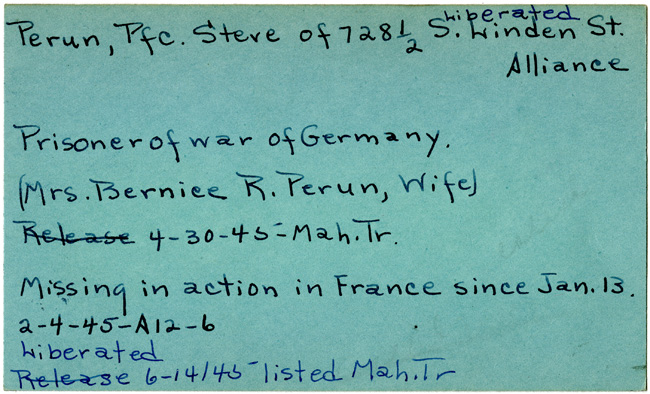 Liberated
Perun, Pfc. Steve of 728½ S. Linden St.
Alliance
Prisoner of war of Germany.
(Mrs. Bernice R. Perun, Wife)
Release 4-30-45-Mah.Tr.
Missing in action in France since Jan. 13.
2-4-45-A12-6
Liberated
Release 6-14/45-listed Mah.Tr